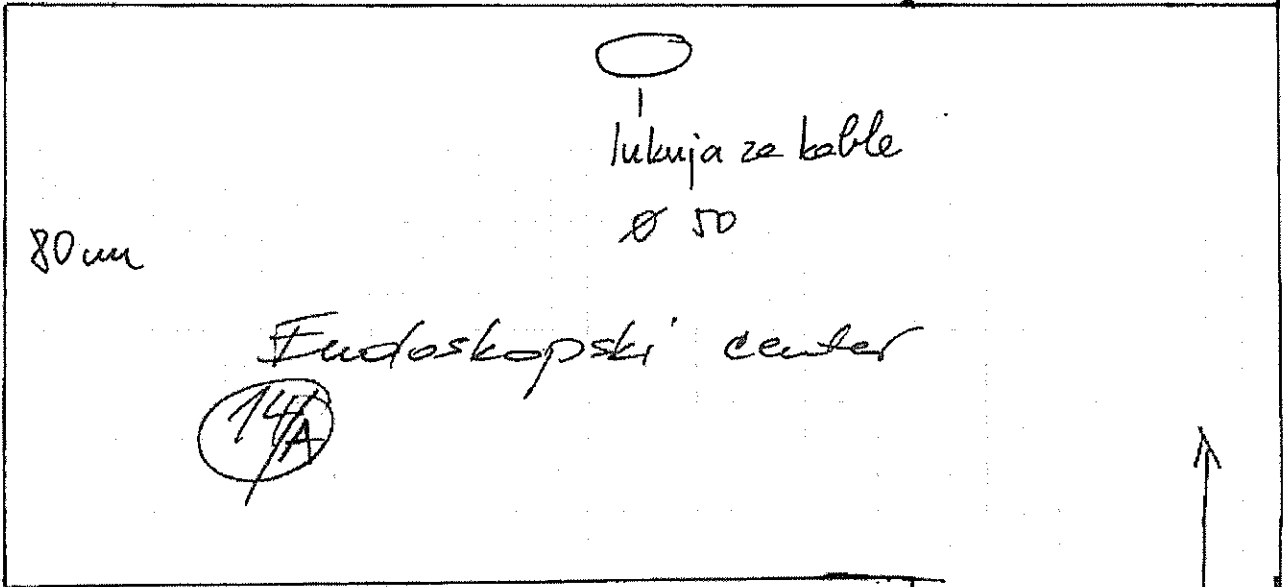 luknja za kable
ø 50
80 cm
Endoskopski center
14/A